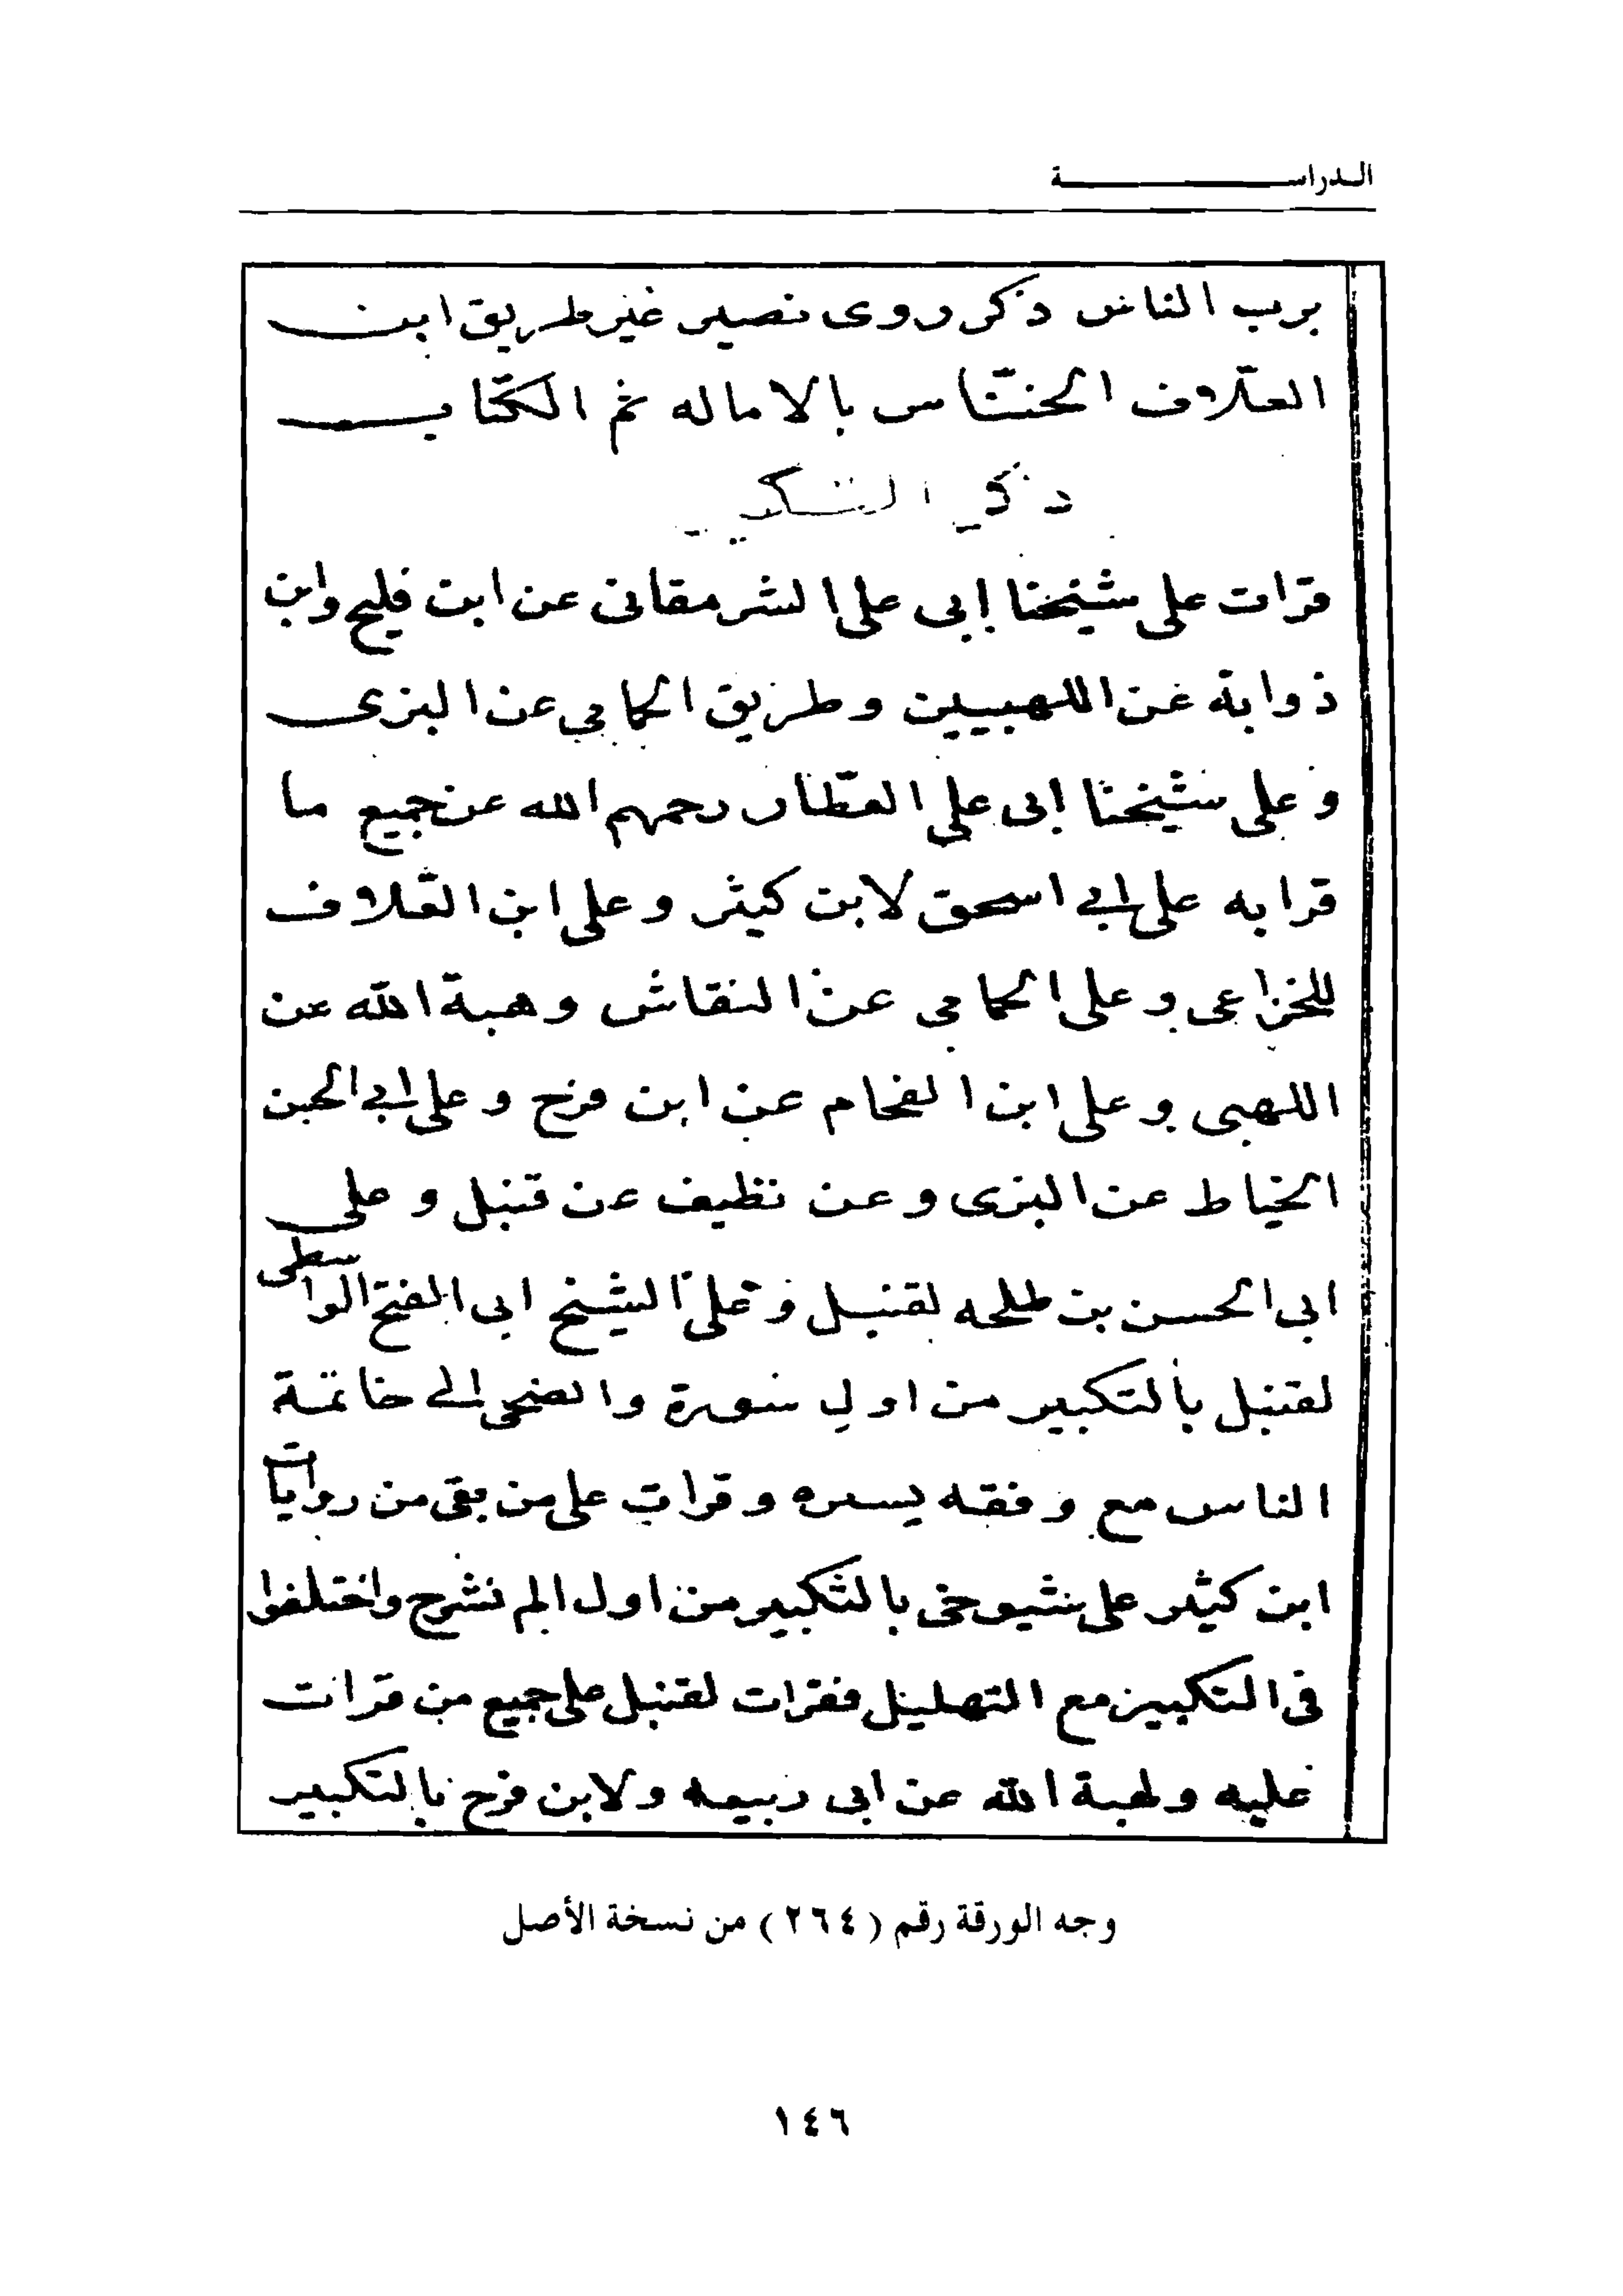 الدراسة
برب الناس ذكر روى نصير غير طريق ابن
العلّاف الخنّاس بالاماله ثم الكتاب
ذكر التكبير
قرات على شيخنا ابى على الشرمقانى عن ابن فليح وابن
ذوابة عن اللهبيين وطريق الحمامى عن البزى
وعلى شيخنا ابى على العطّار رحمهم الله عن جميع ما
قرا به على ابى اسحق لابن كثير وعلى ابن العلاف
للخزاعى وعلى الحمامى عن النقاش وهبة الله عن
اللهبى وعلى ابن الفحام عن ابن فرح وعلى ابى الحسن
الخياط عن البزى وعن نظيف عن قنبل وعلى
ابى الحسن بن طلحه لقنبل وعلى الشيخ ابى الفتح الواسطى
لقنبل بالتكبير من اول سورة والضحى الى خاتمة
الناس مع وقفه يسيره وقرات على من بقى من روايات
ابن كثير على شيوخى بالتكبير من اول الم نشرح واختلفوا
فى التكبير مع التهليل فقرات لقنبل على جميع من قرات
عليه ولهبة الله عن ابى ربيعه ولابن فرح بالتكبير
وجه الورقة رقم (٢٦٤) من نسخة الأصل
١٤٦